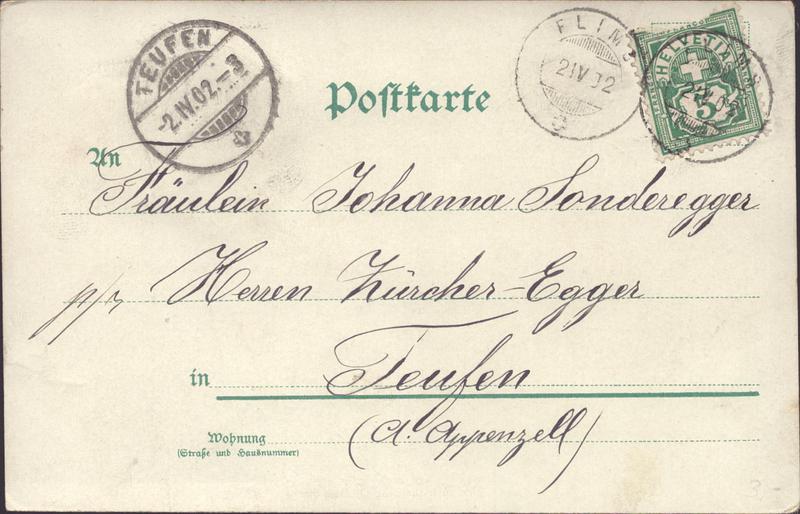 TEUFEN
-2.IV.02.-8
FLIMS
2 IV 02
HELVETIA
5
Postkarte
An
Fräulein Johanna Sonderegger
p/r Herren Zürcher-Egger
in Teufen
Wohnung
(Straße und Hausnummer)
(Ct. Appenzell)
3.-